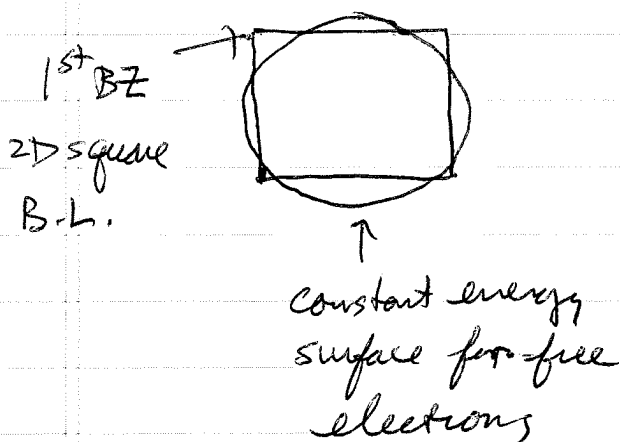 1st BZ
2D square
B.L.
constant energy
surface for free
electrons